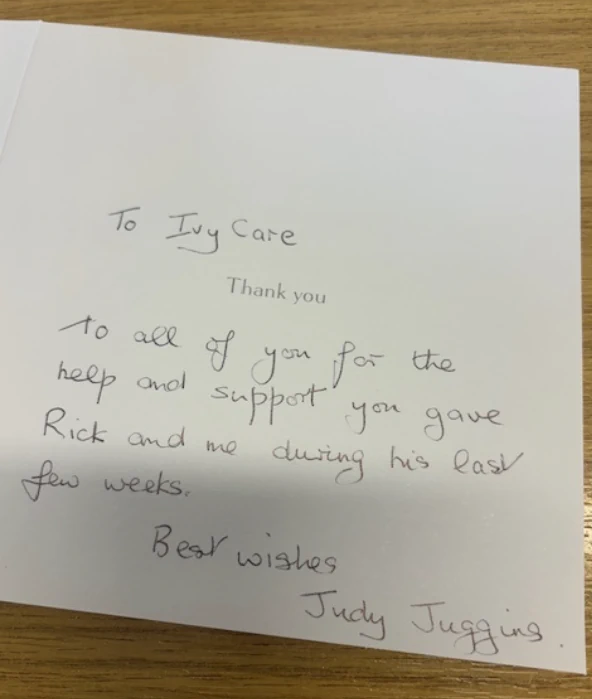 To Ivy Care
Thank you
to all of you for the
help and support you gave
Rick and me during his last
few weeks.
Best wishes
Judy Juggins.